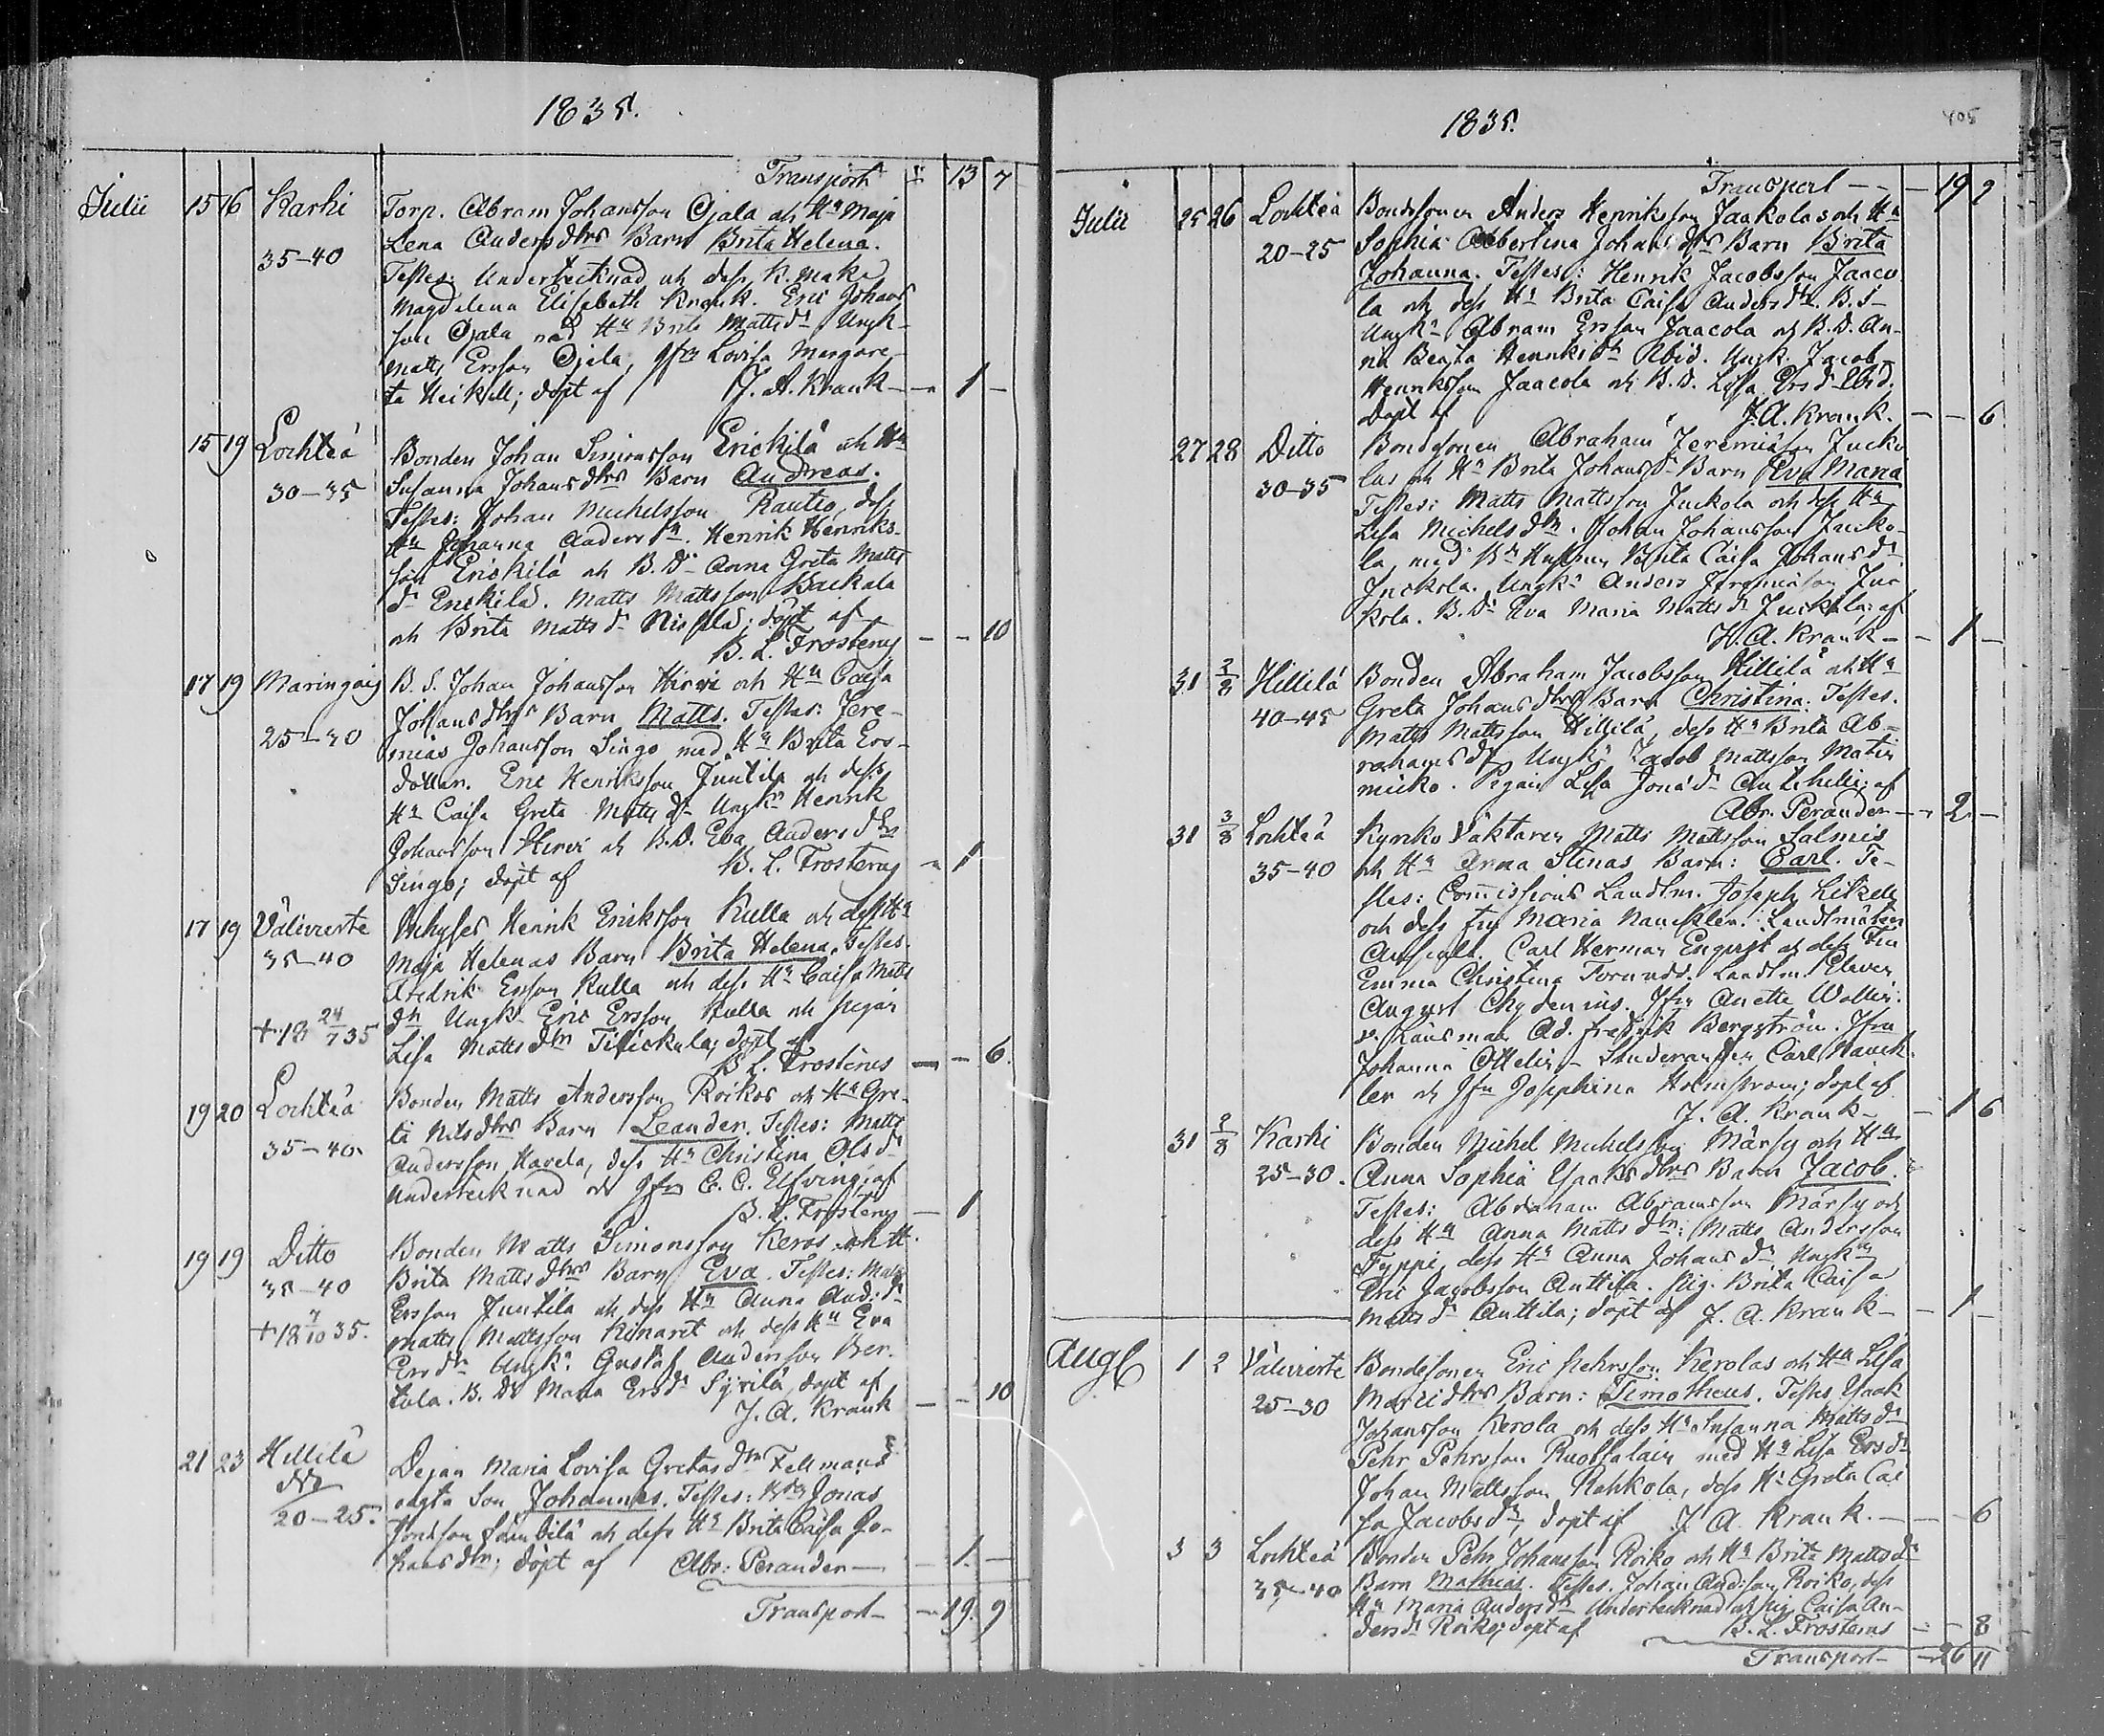 1835.
Transport - 13 7
Julii 15 16 Karhi Torp. Abram Johansson Ojala och Hu Maja
35-40 Lena Andersdtrs Barn Brita Helena.
Testes: Undertecknad och dess K. Maka
Magdalena Elisabeth Krank. Eric Johans
son Ojala med Hu Brita Mattsdr Ungk.
Matts Ersson Ojala, Jfru Lovisa Margare-
ta Heikell; döpt af J. A. Krank - 1 -
15 19 Lochteå Bonden Johan Simonsson Erickilä och Hu
30-35 Susanna Johansdtrs Barn Andreas.
Testes: Johan Michelsson Rautio, dess
Hu Johanna Andersdtr. Henrik Henriks-
son Erickilä och B. Dr Anna Greta Matts
dr Erickilä. Matts Mattsson
och Brita Mattsdr döpt af
B. L. Frosterus - - 10
17 19 Maringais B. S. Johan Johansson Hirvi och Hu Caisa
25-30 Johansdtrs Barn Matts. Testes: Jere-
mias Johansson Singo med Hu Brita Ers-
dotter. Eric Henriksson Juntila och dess
Hu Caisa Greta Mattsdr Ungkn Henrik
Johansson Hirvi och B.D. Eva Andersdtr
Singo; döpt af B. L. Frosterus - 1
17 19 Välivirrte Inhyses Henrik Eriksson Kulla och dess Hu
35-40 Maja Helenas Barn Brita Helena. Testes.
Fredrik Ersson Kulla och dess Hu Caisa Matts
+ 18 24/7 35 dtr Ungk. Eric Ersson Kulla och pigan
Lisa Mattsdtr döpt af
B L. Frosterus - - 6.
19 20 Lochteå Bonden Matts Andersson Roikos och Hu Gre-
35-40. ta Nilsdtrs Barn Leander. Testes: Matts
Andersson Havela, dess Hu Christina Olsdr
Undertecknad och Jfru C. C. Elfving; af
B. L. Frosterus - 1
19 19 Ditto Bonden Matts Simonsson Keros och H.
35-40 Brita Mattsdtrs Barn Eva. Testes: Matts
+ 18 7/10 35. Ersson Juntila och dess Hu Anna And:dr
Matts Mattsson Kinaret och dess Hu Eva
Ersdtr Ungk. Gustaf Andersson Ker-
tola. B. Dr Maria Ersdr Syrilä, döpt af
J. A. Krank - - 10
21 23 Hillilä Dejan Maria Lovisa Gretasdtr Fellmans
20-25. oägta Son Johannes. Testes: Jonas
Jonsson och dess Hu Brita Caisa Jo-
hansdtr; döpt af Abr: Perander - 1. -
Transport - 19. 9
1835.
405
Transport - - 19 9
Julii 25 26 Lochteå Bondesonen Anders Henriksson Jaakolas och Hu
20-25 Sophia Albertina Johansdtrs Barn Brita
Johanna. Testes: Henrik Jacobsson Jaaco
la och dess Hu Brita Caisa Andersdtr. B. S-
Ungkn Abram Ersson Jaacola och B. D. An-
na Beata Henriksdtr Ibid. Ungk. Jacob
Henriksson Jaacola och B. D. Lisa Ersdr Ibid.
döpt af J. A. Krank. - - 6
27 28 Ditto Bondesonen Abraham Jeremiæson Jucko
30-35 las och Hu Brita Johansdr Barn Eva Maria
Testes: Matts Mattsson Juckola och dess Hu
Lisa Michelsdtr. Johan Johansson Jucko-
la, med Brita Caisa Johansdr
Juckola. Ungkn Anders Jeremiæson Juc
kola. B. Dr Eva Maria Mattsdr Juckola; af
J. A. Krank - - 1 -
31 2/8 Hillilä Bonden Abraham Jacobsson Hillilä och Hu
40-45 Greta Johansdtrs Barn Christina. Testes.
Matts Mattsson Hillilä, dess Hu Brita Ab-
rahamsdtr Ungkn Jacob Mattsson
Pigan Lisa Jonædr af
Abr. Perander - - 2 -
31 3/8 Lochteå Kyrko Väktaren Matts Mattsson Salmis
35-40 och Hu Anna Stinas Barn: Carl. Te-
stes: Commissions Landtm. Joseph Litzelli
och dess Fru Maria Nauckler. Landtmäteri
Auscult. Carl Herman Engvist och dess Fru
Emma Christina Landtm. Eleven
August Chydenius. Jfru Anette Wallin.
v. Länsman Ad. Fredrik Bergström. Jfru
Johanna Ottelin - Studeranden Carl Nauck-
ler och Jfru Josephina Holmström; döpt af
J. A. Krank - - 1 6
31 2/8 Karhi Bonden Michel Michelsson Märsy och Hu
25-30. Anna Sophia Ysaksdtrs Barn Jacob.
Testes: Abraham Abramsson Märsy och
dess Hu Anna Mattsdtr: Matts Andersson
Typpi, dess Hu Anna Johansdr Ungkn
Eric Jacobsson Anttila. Pig. Brita Caisa
Mattsdr Anttila; döpt af J. A. Krank - - 1 -
Aug. 1 2 Välivirrte Bondesonen Eric Pehrsson Kerolas och Hu Lisa
25-30 Marcidtrs Barn: Timotheus. Testes Ysaak
Johansson Kerola och dess Hu Susanna Mattsdr
Pehr Pehrsson Ruotsalain med Hu Lisa Ersdr
Johan Mattsson Rahkola, dess Hu Greta Cai
sa Jacobsdtr, döpt af J A. Krank. - - 6
3 3 Lochteå Bonden Pehr Johansson Roiko och Hu Brita Mattsdr
35-40 Barn Mathias. Testes. Johan Andsson Roiko, dess
Hu Maria Andersdtr Undertecknad och pig. Caisa An-
dersdr Roiko; döpt af B. L. Frosterus - - 8
Transport - 26 11